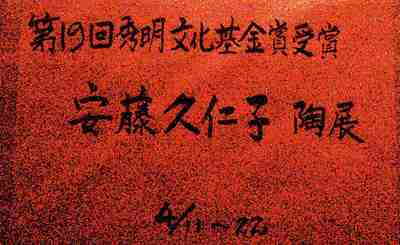 第19回秀明文化基金賞受賞
安藤久仁子 陶展
4/11〜22